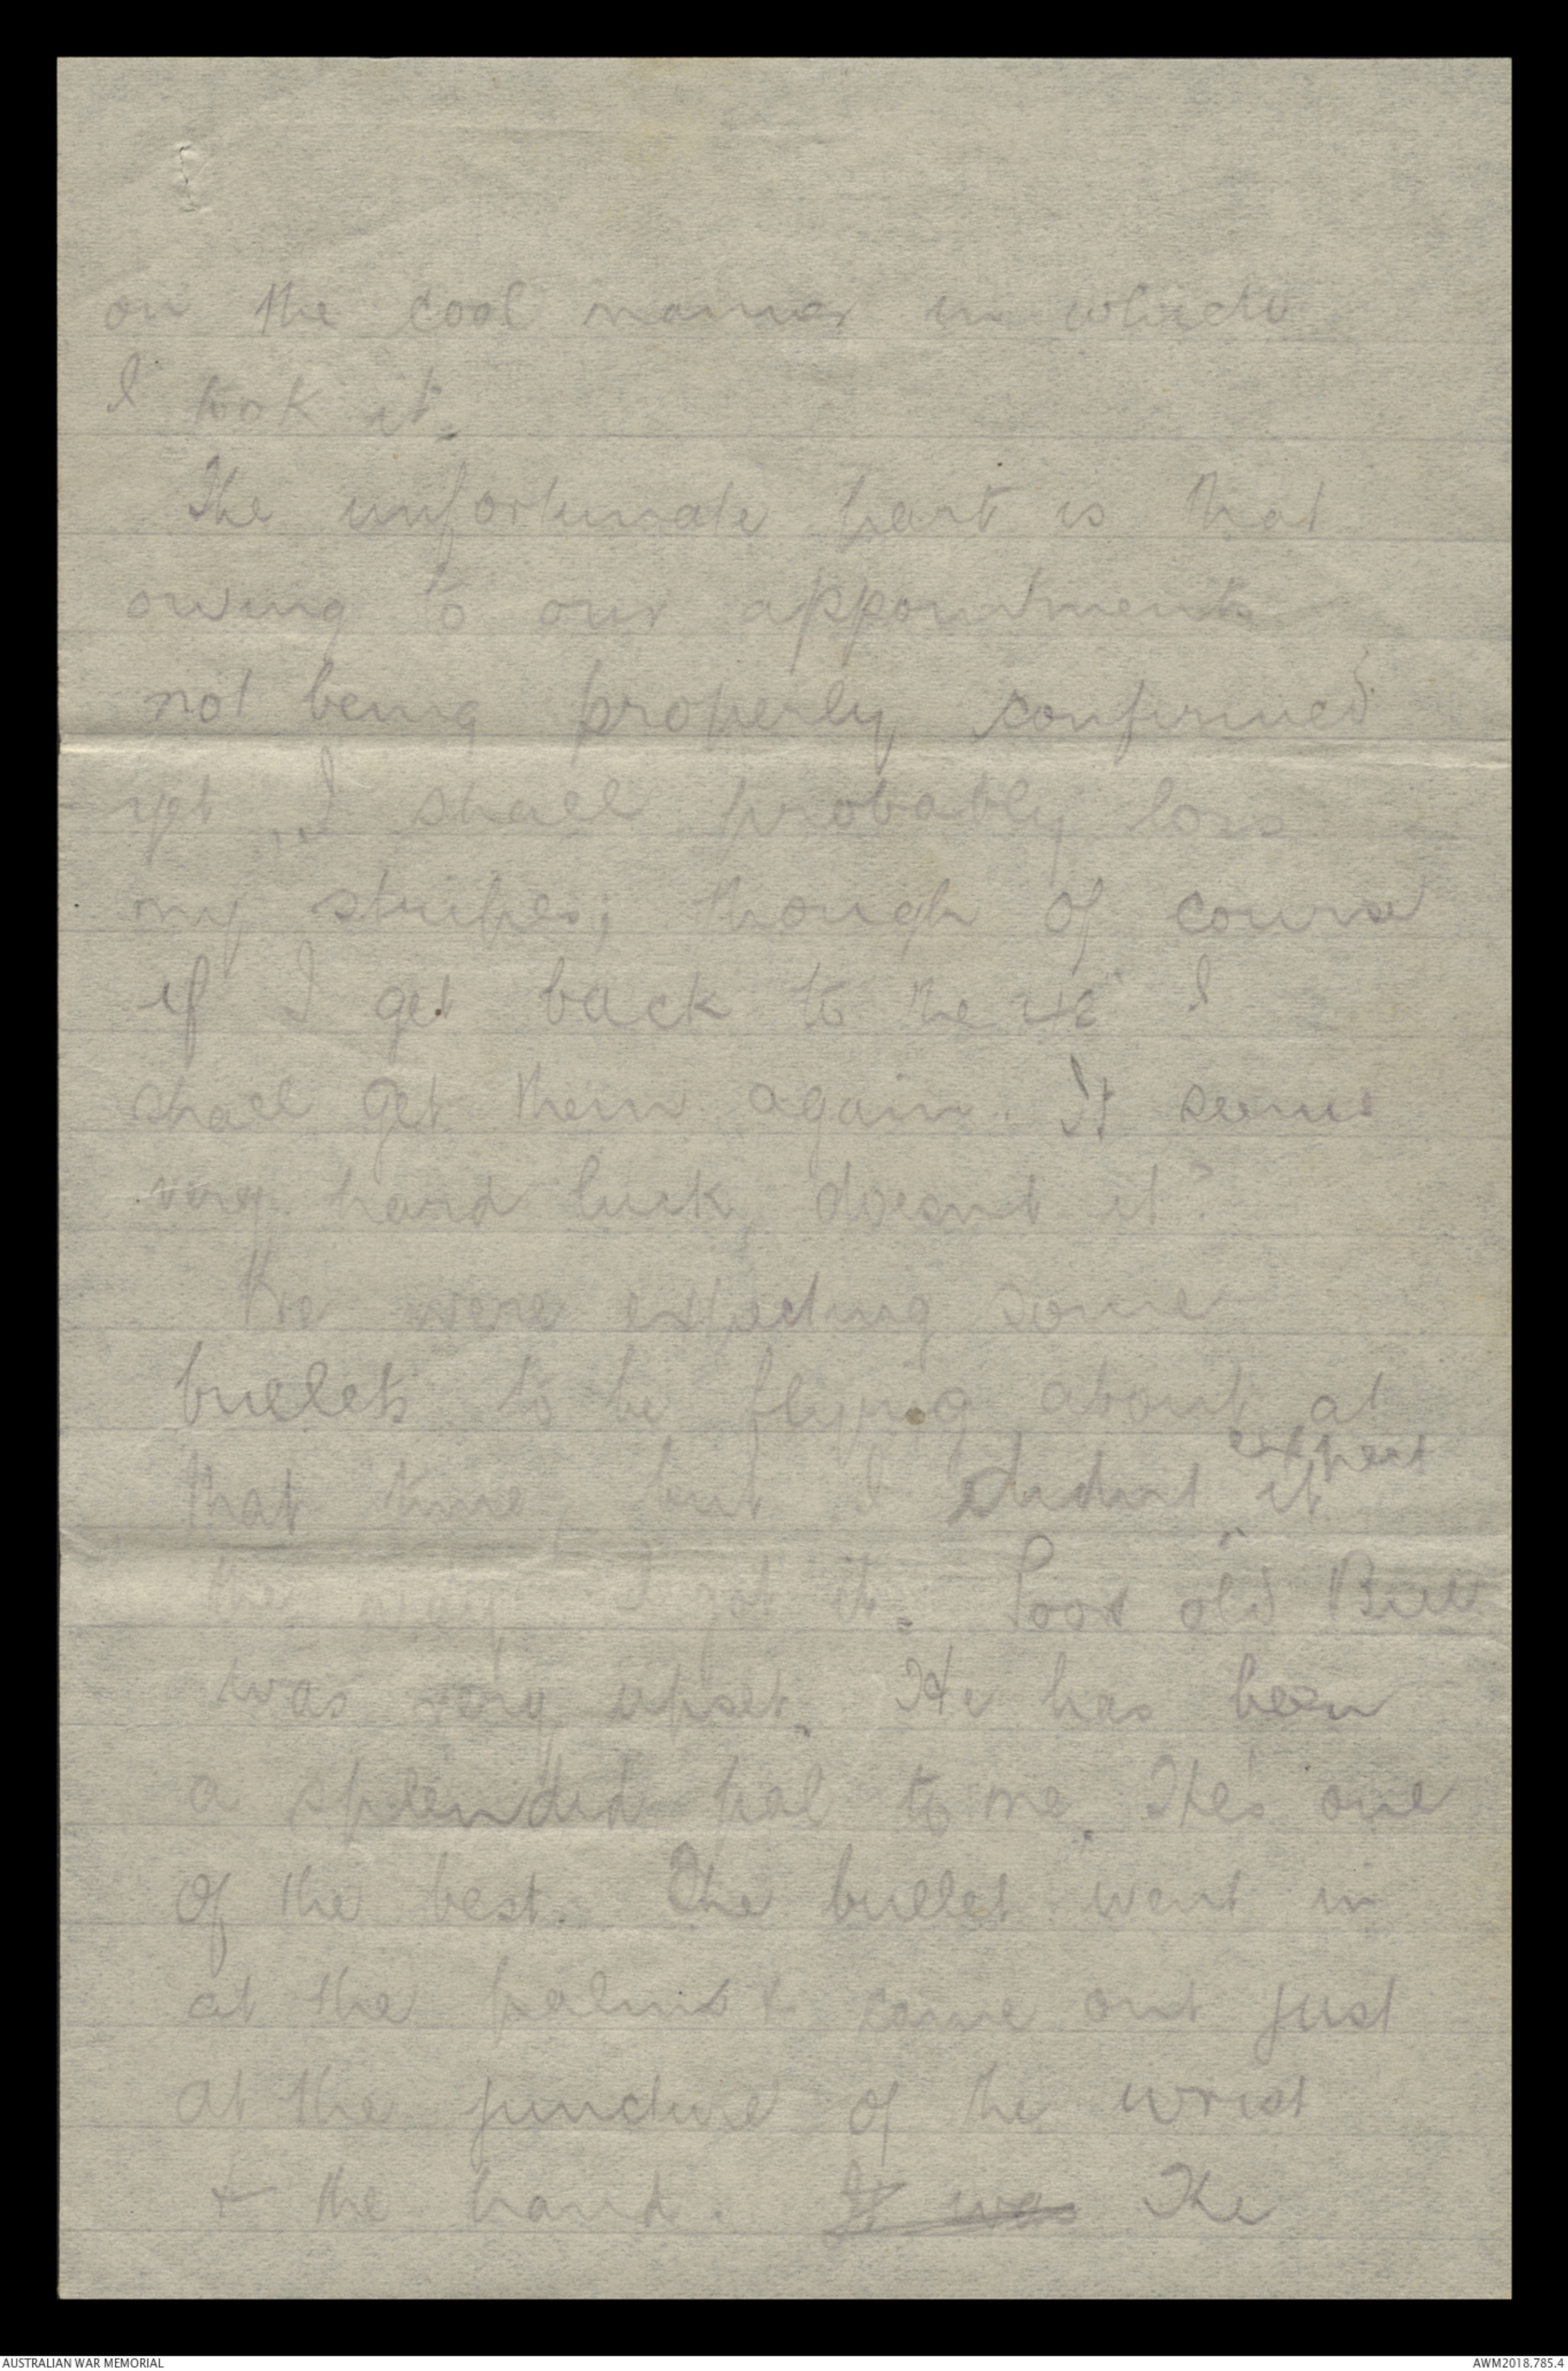 on the cool manner in which
I took it.
The unfortunate part is that
owing to our appointments
not being properly confirmed
yet, I shall probably loss
my stripes; though of course
if I get back to the I
shall get them again. It seems
very hard luck, doesnt it?
We were expecting some
bullets to be flying about at
that time, but I didnt expect it
the way I got it. Poor old Bill
was very upset. He has been
a splendid pal to me. He's one
of the best. The bullet went in
at the palm & came out just
at the juncture of the wrist
& the hand. It was The
AUSTRALIAN WAR MEMORIAL
AWM2018.785.4